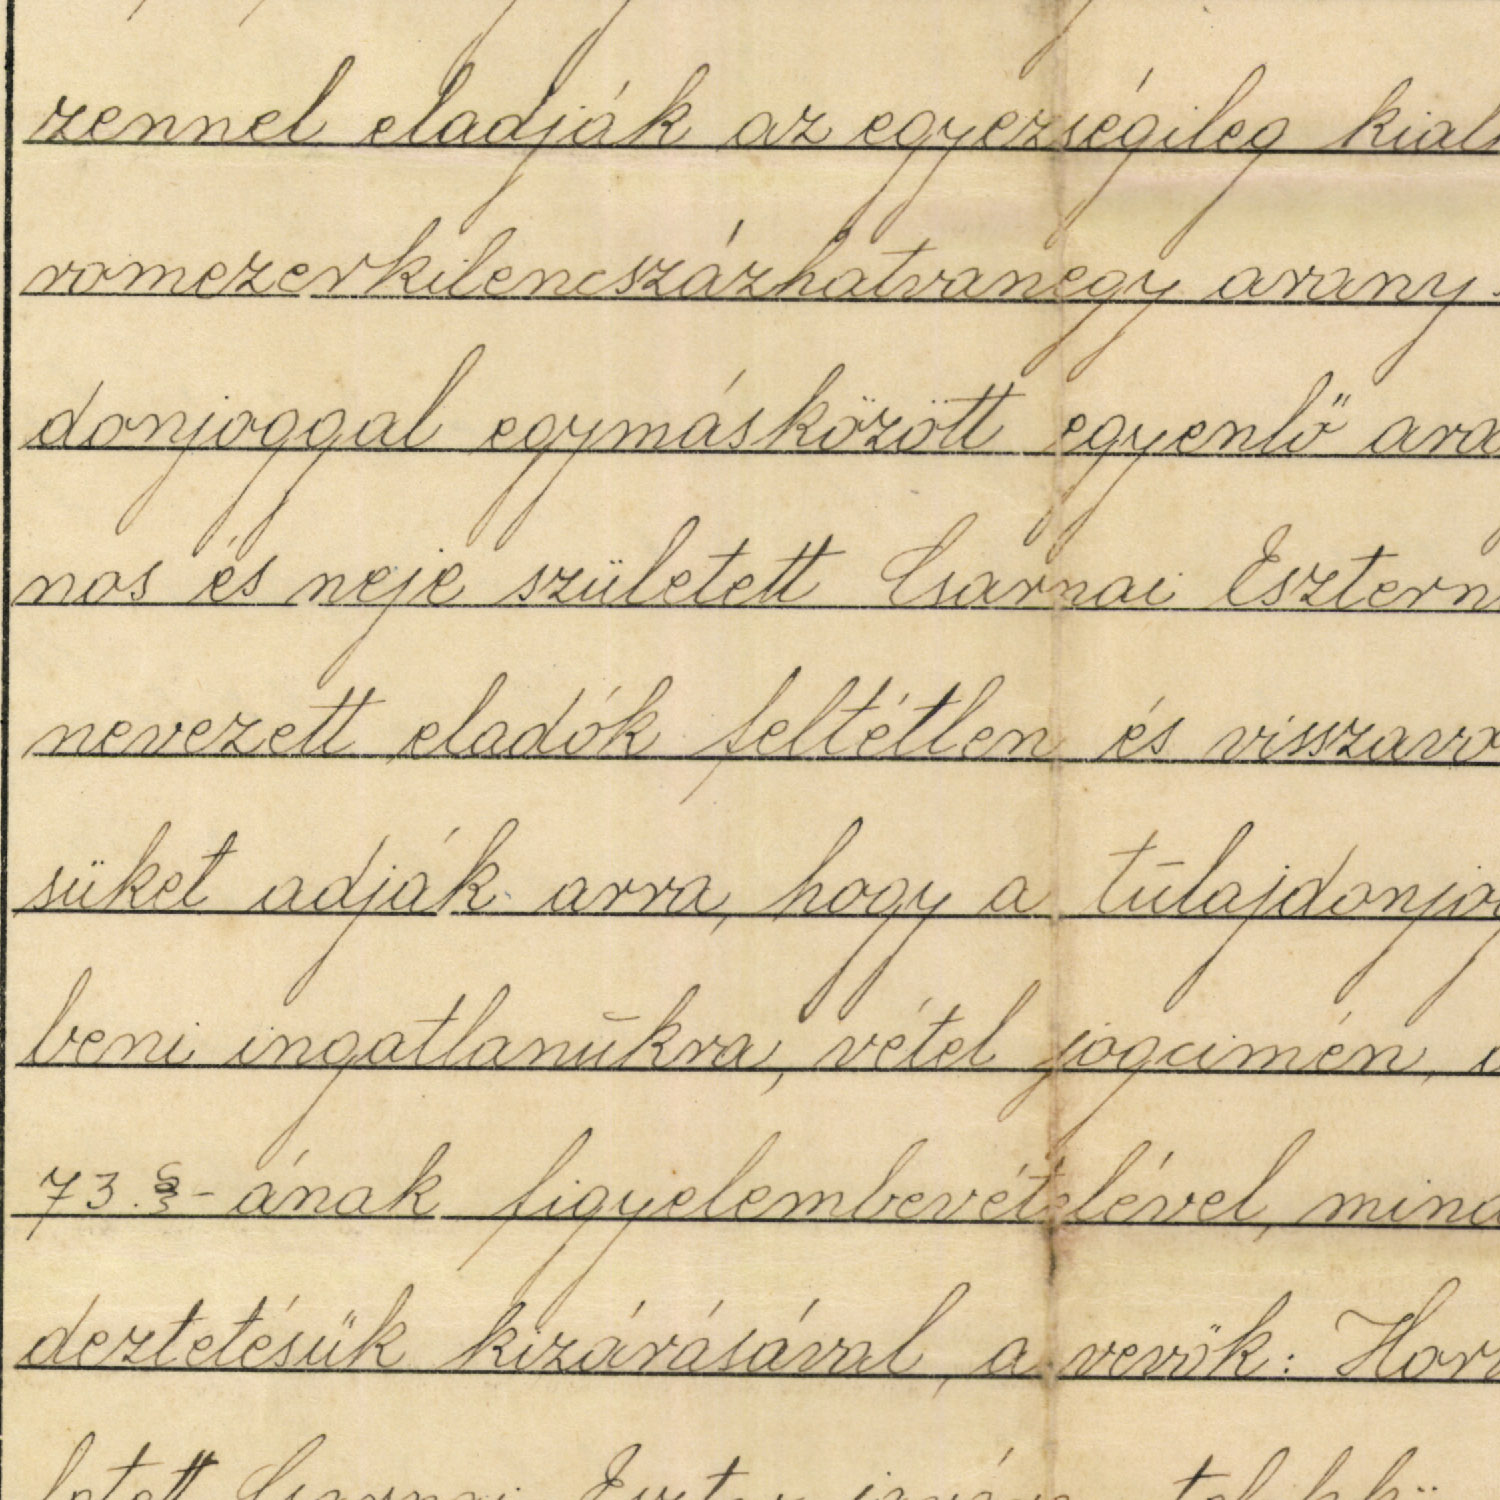 zennel eladják az egyezségileg kial
romezerkilencszázhatvanegy arany
donjoggal egymásközött egyenlő ara
nos és neje született Csarnai Esztern
nevezett eladók feltétlen és visszavo
süket adják arra, hogy a tūlajdonjog
beni ingatlanūkra, vétel jogcimén,
73.§-ának figyelembevételével, mind
deztetésük kizárásával, a vevők: Hor
letett Csarnai Eszter javára telekkö